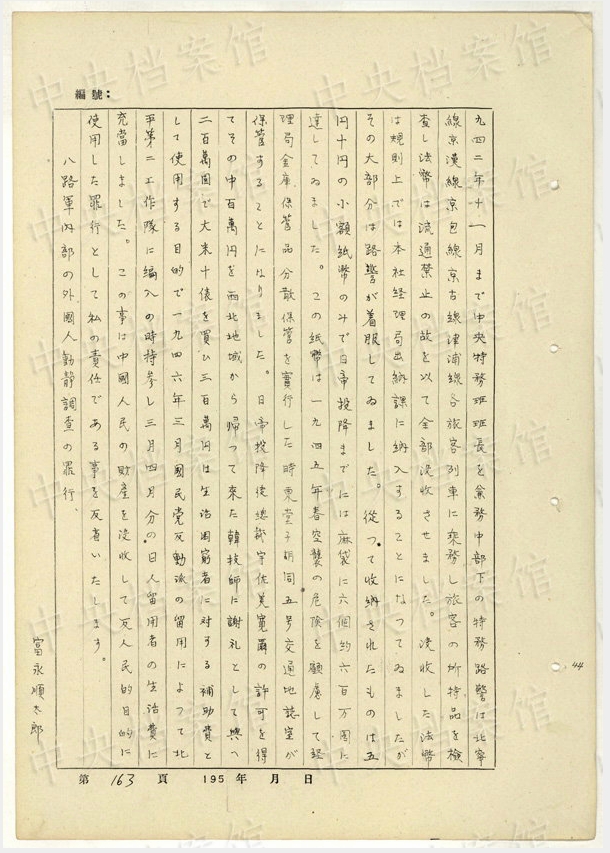 編號：
九四二年十一月まで中央特務班班長を兼務中部下の特務路警は北寧
線京漢線京包線京古線津浦線各旅客列車に乗務し旅客の所持品を検
査し法幣は流通禁止の故を以て全部没收させました。没收した法幣
は規則上では本社経理局出納課に納入することになつてゐましたが
その大部分は路警が着服してゐました。従つて收納されたものは五
円十円の小額紙幣のみで日帝投降までには麻袋に六個約六百万円に
達してゐました。この紙幣は一九四五年春空襲の危険を顧慮して経
理局金庫保管品分散保管を実行した時栗堂子胡同五号交通地誌室が
保管することになりました。日帝投降後総裁宇佐美寛爾の許可を得
てその中百萬円を西北地域から帰つて来た韓技師に謝礼として興へ
二百萬円で大米十俵を買ひ三百萬円は生活困窮者に対する補助費と
して使用する目的で一九四六年三月國民党反動派の留用によつて北
平第二工作隊に編入の時持参し三月四月分の日人留用者の生活費に
充當しました。この事は中國人民の財産を没收して反人民的目的に
使用した罪行として私の責任である事を反省いたします。
八路軍内部の外國人動靜調査の罪行、
富永順太郎
44
第 163 頁 195 年 月 日
中央档案馆